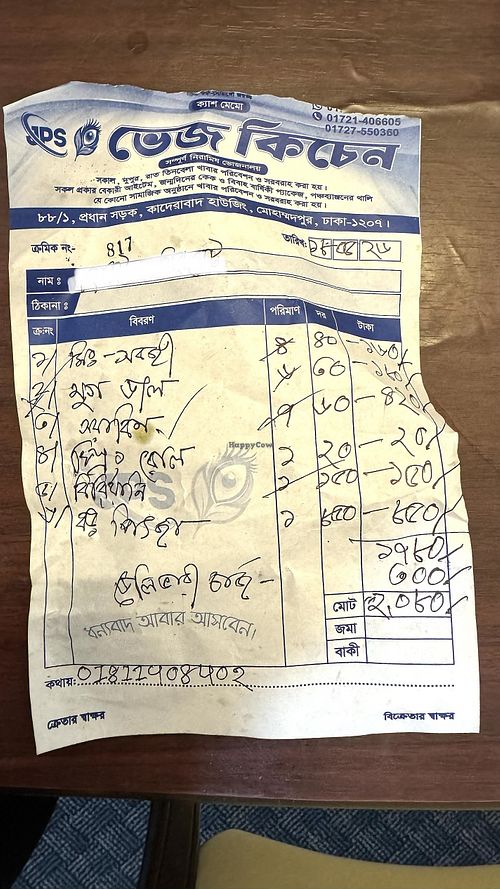 ক্যাশ মেমো
01721-406605
01727-550360
JPS ভেজ কিচেন
সম্পূর্ণ নিরামিষ ভোজনালয়
সকাল, দুপুর, রাত তিনবেলা খাবার পরিবেশন ও সরবরাহ করা হয়।
সকল প্রকার বেকারী আইটেম, জন্মদিনের কেক ও বিবাহ বার্ষিকী প্যাকেজ, পঞ্চব্যঞ্জনের থালি
যে কোনো সামাজিক অনুষ্ঠানে খাবার পরিবেশন ও সরবরাহ করা হয়।
৮৮/১, প্রধান সড়ক, কাদেরাবাদ হাউজিং, মোহাম্মদপুর, ঢাকা-১২০৭।
ক্রমিক নং- 417 তারিখ:
নাম :
ঠিকানা :
ক্র:নং বিবরণ পরিমাণ দর টাকা
১/ মিক্স-সবজী ৪ ৪০ - ১৬০/
২/ মুগ ডাল ৬ ৩০ - ১৮০/
৩/ ৭ ৬০ - ৪২০/
৪/ রোল ১ ২০ - ২০/
৫/ বিরিয়ানি ১ ১৫০ - ১৫০/
৬/ ১ ৮৫০ - ৮৫০/
HappyCow
১৭৮০/
ডেলিভারী চার্জ - ৩০০/
মোট ২,০৮০/
ধন্যবাদ আবার আসবেন।
জমা
বাকী
কথায়: 01811408402
ক্রেতার স্বাক্ষর বিক্রেতার স্বাক্ষর